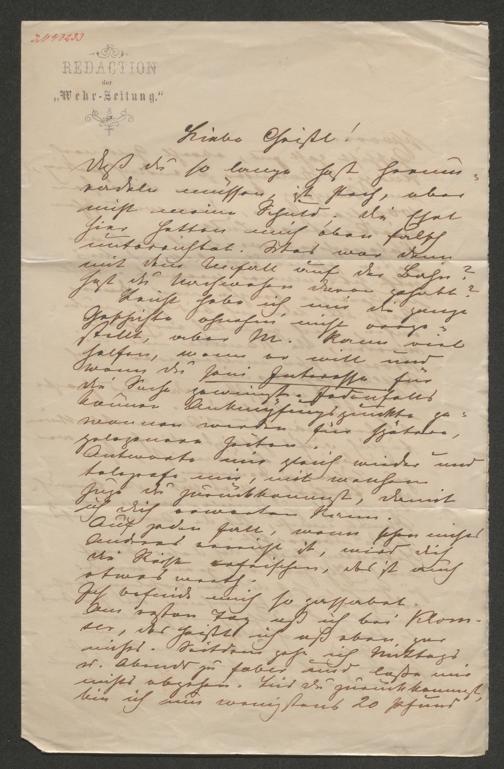 2097233
REDACTION
der
„Wehr-Zeitung."
Liebe Christl!
Daß du so lange hast herum=
radeln müssen, ist stark, aber
nicht meine Schuld. die
hier hatten mich eben falsch
unterrichtet. Was war denn
mit dem Unfall auf der Bahn?
hast du Nachwehen davon gehabt?
Leicht habe ich mir die ganze
Geschichte ohnehin nicht vorge=
stellt, aber M. kann viel
helfen, wenn er will und
wenn du sein Interesse für
die Sache gewinnst. Jedenfalls
können Anknüpfungspunkte ge=
wonnen werden für spätere,
gelegenere Zeiten.
Antworte mir gleich wieder und
telegrafir mir, mit welchem
Zuge du zurückkommst, damit
ich dich erwarten kann.
Auf jeden Fall, wenn schon nichts
Anderes erreicht ist, wird dich
die Reise erfrischen, das ist auch
etwas werth.
Ich befinde mich so passabel.
Am ersten Tag aß ich bei Klom-
ser, das heißt ich aß eben gar
nichts. Seitdem geh ich Mittags
u. Abends zu und laße mir
nichts abgehen. Bis du zurückkommst,
bin ich um wenigstens 20 Pfund